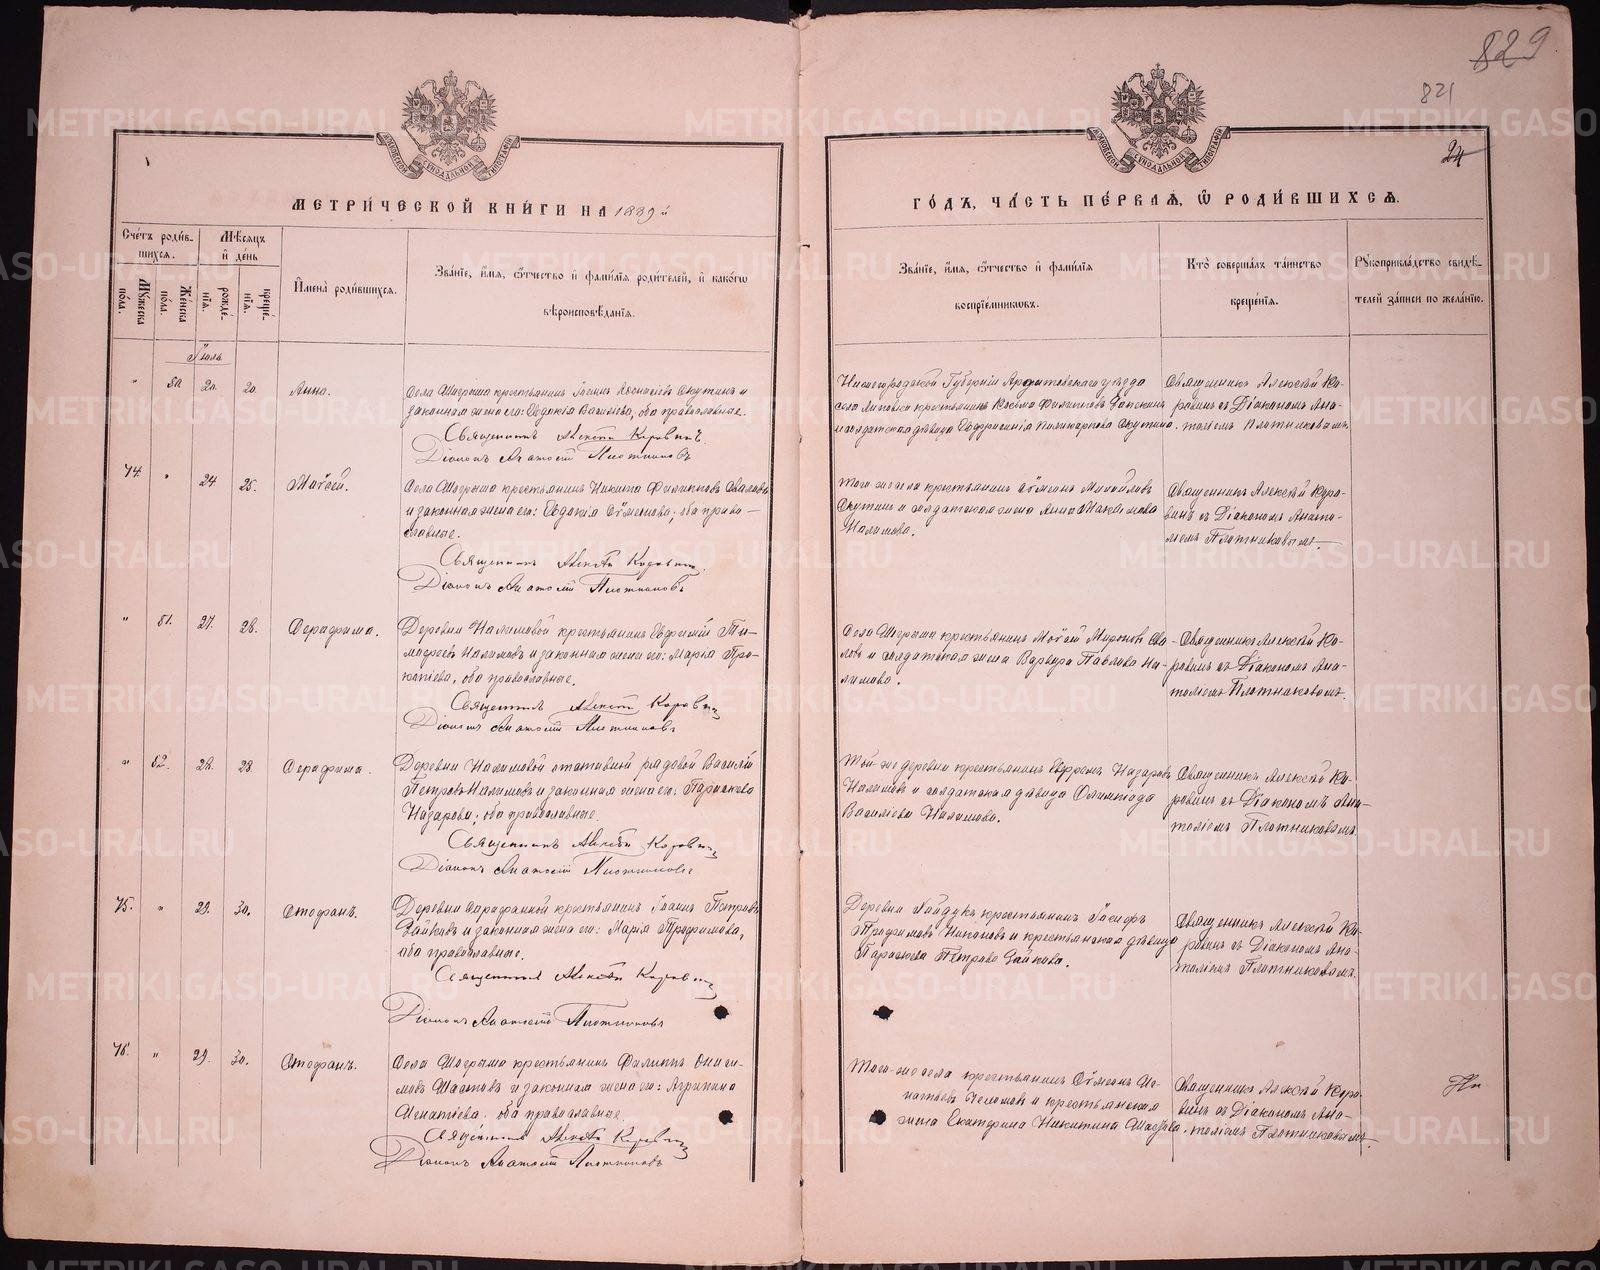 829
821
24
МОСКОВСКОЙ СѴНОДАЛЬНОЙ ТИПОГРАФІИ
МОСКОВСКОЙ СѴНОДАЛЬНОЙ ТИПОГРАФІИ
МЕТРИ́ЧЕСКОЙ КНИ́ГИ НА 1889й
ГО́ДЪ, ЧА́СТЬ ПЕ́РВАѦ, Ѿ РОДИ́ВШИХСѦ.
Сче́тъ роди́в-
шихсѧ.
Мѣ́сѧцъ
и҆ де́нь
Мꙋ́жеска по́ла.
Же́нска по́ла.
рожде́-нїѧ.
креще́-нїѧ.
И҆мена̀ роди́вшихсѧ.
Зва́нїе, и҆́мѧ, ѻ҆́тчество и҆ фами́лїѧ роди́телей, и҆ како́гѡ
вѣроисповѣ́данїѧ.
Зва́нїе, и҆́мѧ, ѻ҆́тчество и҆ фами́лїѧ
воспрїе́мникѡвъ.
Кто̀ соверша́лъ та́инство
креще́нїѧ.
Рꙋкоприкла́дство свидѣ́-
телей за́писи по жела́нїю.
Іюль
" 50 20 20. Анна.
Села Шогрыша крестьянинъ Іоаннъ Скутинъ и
законная жена его: Евдокія Васильева, оба православные.
Священникъ Алексій Коровинъ
Діаконъ Анатолій Плотниковъ
Нижегородской Губерніи Ардатовскаго уѣзда
села крестьянинъ Косьма Филипповъ
и солдатская дѣвица Евфросинія Поликарпова Скутина.
Священникъ Алексѣй Ко-
ровинъ съ Діакономъ Ана-
толіемъ Плотниковымъ.
74. " 24 25. Моѵсей.
Села Шогрыша крестьянинъ Никита Филипповъ
и законная жена его: Евдокія Сѵмеонова; оба право-
славные.
Священникъ Алексій Коровинъ.
Діаконъ Анатолій Плотниковъ
Того же села крестьянинъ Сѵмеонъ Михайловъ
Скутинъ и солдатская жена Анна Максимова
Налимова.
Священникъ Алексѣй Коро-
винъ съ Діакономъ Анато-
ліемъ Плотниковымъ.
" 51. 27. 28. Серафима.
Деревни Налимовой крестьянинъ Евфимій Ти-
мофеевъ Налимовъ и законная жена его: Марія Про-
копіева, оба православные.
Священникъ Алексій Коровинъ
Діаконъ Анатолій Плотниковъ
Села Шогрыша крестьянинъ Моѵсей Мироновъ
и солдатская жена Варвара Павлова На-
лимова.
Священникъ Алексѣй Ко-
ровинъ съ Діакономъ Ана-
толіемъ Плотниковымъ.
" 52. 28. 28. Серафима.
Деревни Налимовой отставной рядовой Василій
Петровъ Налимовъ и законная жена его: Параскева
Назарова; оба православные.
Священникъ Алексій Коровинъ
Діаконъ Анатолій Плотниковъ
Той-же деревни крестьянинъ Ефремъ Назаровъ
Налимовъ и солдатская дѣвица Олимпіада
Василіева Налимова.
Священникъ Алексѣй Ко-
ровинъ съ Діакономъ Ана-
толіемъ Плотниковымъ.
75. " 29. 30. Стефанъ.
Деревни Сарафанкой крестьянинъ Іоаннъ Петровъ
Зайковъ и законная жена его: Марія Трофимова,
оба православные.
Священникъ Алексій Коровинъ
Діаконъ Анатолій Плотниковъ
Деревни Гайдукъ крестьянинъ Іосифъ
Трофимовъ Никоновъ и крестьянская дѣвица
Параскева Петрова Зайкова.
Священникъ Алексѣй Ко-
ровинъ съ Діакономъ Ана-
толіемъ Плотниковымъ.
76. " 29. 30. Стефанъ.
Села Шогрыша крестьянинъ Филиппъ Ониси-
мовъ и законная жена его: Агрипина
Игнатіева. оба православные
Священникъ Алексій Коровинъ
Діаконъ Анатолій Плотниковъ
Того-же села крестьянинъ Сѵмеонъ Иг-
натьевъ и крестьянская
жена Екатерина Никитина
Священникъ Алексѣй Коро-
винъ съ Діакономъ Ана-
толіемъ Плотниковымъ.
METRIKI.GASO-URAL.RU